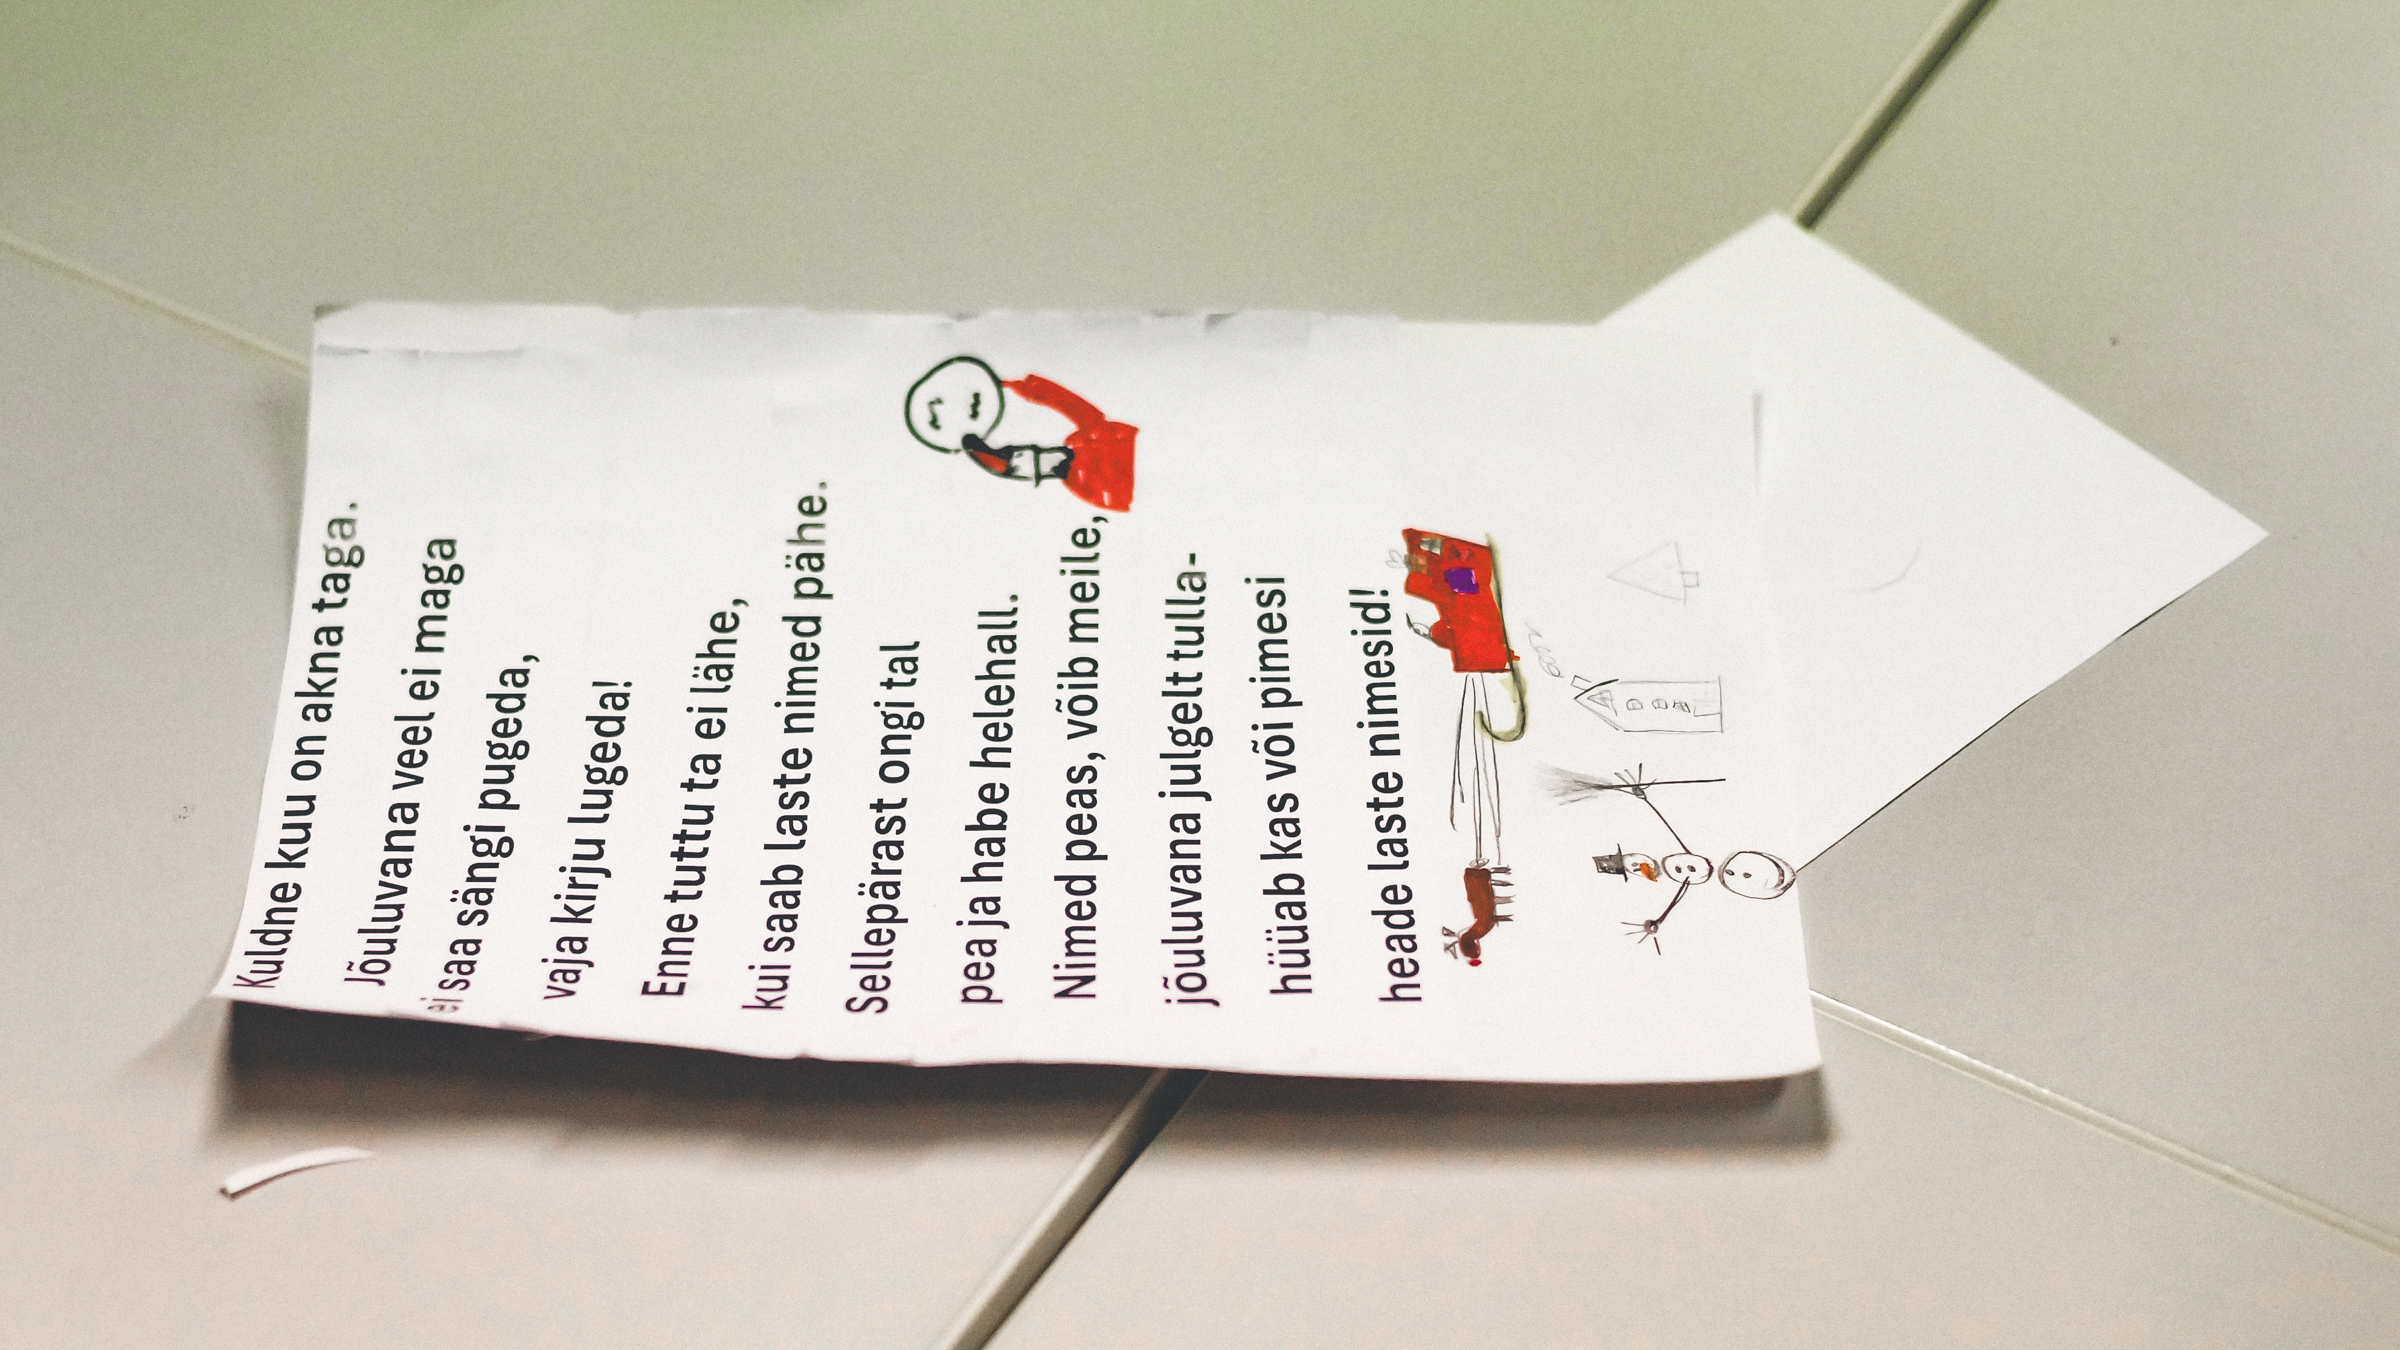 Kuldne kuu on akna taga.
Jõuluvana veel ei maga
ei saa sängi pugeda,
vaja kirju lugeda!
Enne tuttu ta ei lähe,
kui saab laste nimed pähe.
Sellepärast ongi tal
pea ja habe helehall.
Nimed peas, võib meile,
jõuluvana julgelt tulla-
hüüab kas või pimesi
heade laste nimesid!